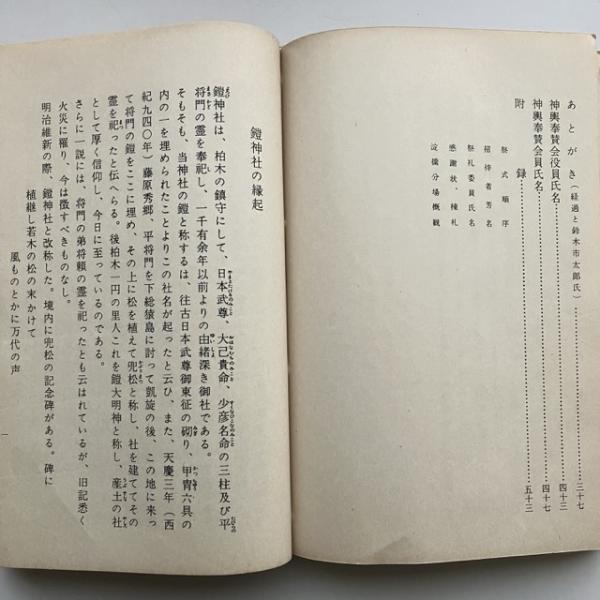 あとがき（経過と鈴木市太郎氏）……三十七
神輿奉賛会役員氏名……四十三
神輿奉賛会員氏名……四十七
附　録……五十三
祭式順序
招待者芳名
祭礼委員氏名
感謝状、棟札
淀橋分場概観
鎧神社の縁起
鎧神社は、柏木の鎮守にして、日本武尊、大己貴命、少彦名命の三柱及び平
将門の霊を奉祀し、一千有余年以前よりの由緒深き御社である。
そもそも、当神社の鎧と称するは、往古日本武尊御東征の砌り、甲冑六具の
内の一を埋められたことよりこの社名が起ったと云ひ、また、天慶三年（西
紀九四〇年）藤原秀郷、平将門を下総猿島に討って凱旋の後、この地に来っ
て将門の鎧をここに埋め、その上に松を植えて兜松と称し、社を建ててその
霊を祀ったと伝へらる。後柏木一円の里人これを鎧大明神と称し、産土の社
として厚く信仰し、今日に至っているのである。
さらに一説には、将門の弟将頼の霊を祀ったとも云はれているが、旧記悉く
火災に罹り、今は徴すべきものなし。
明治維新の際、鎧神社と改称した。境内に兜松の記念碑がある。碑に
植継し若木の松の末かけて
風ものとかに万代の声
一